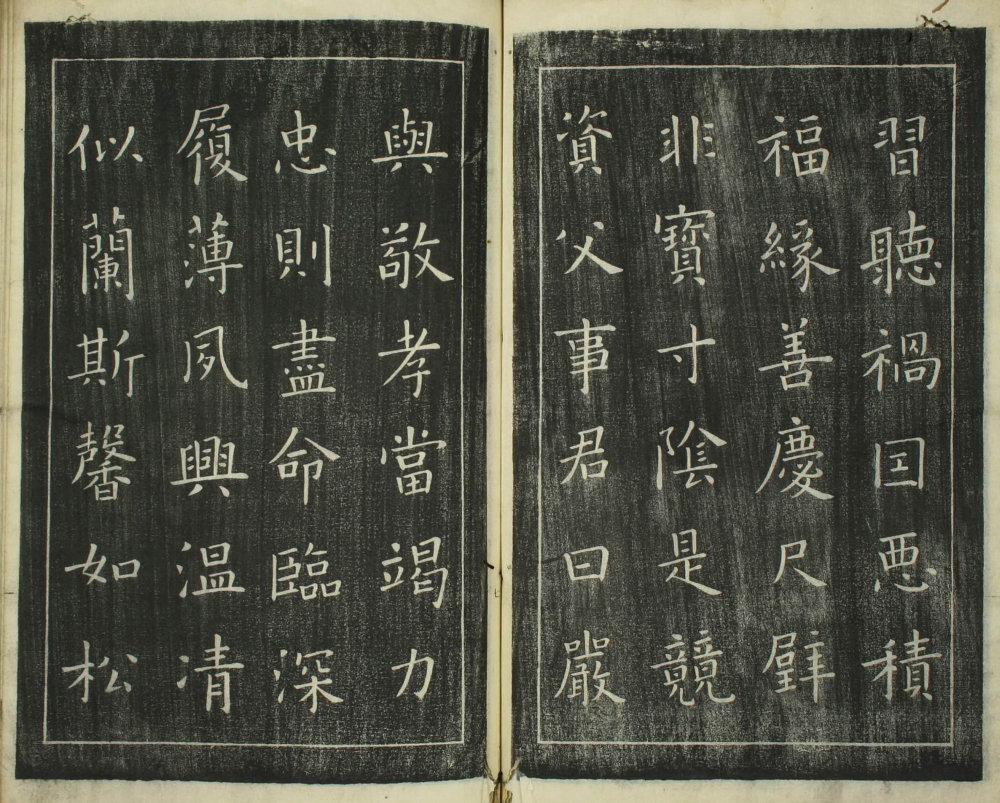 習聽禍囙悪積
福緣善慶尺璧
非寶寸陰是競
資父事君曰嚴
與敬孝當竭力
忠則盡命臨深
履薄夙興温凊
似蘭斯馨如松